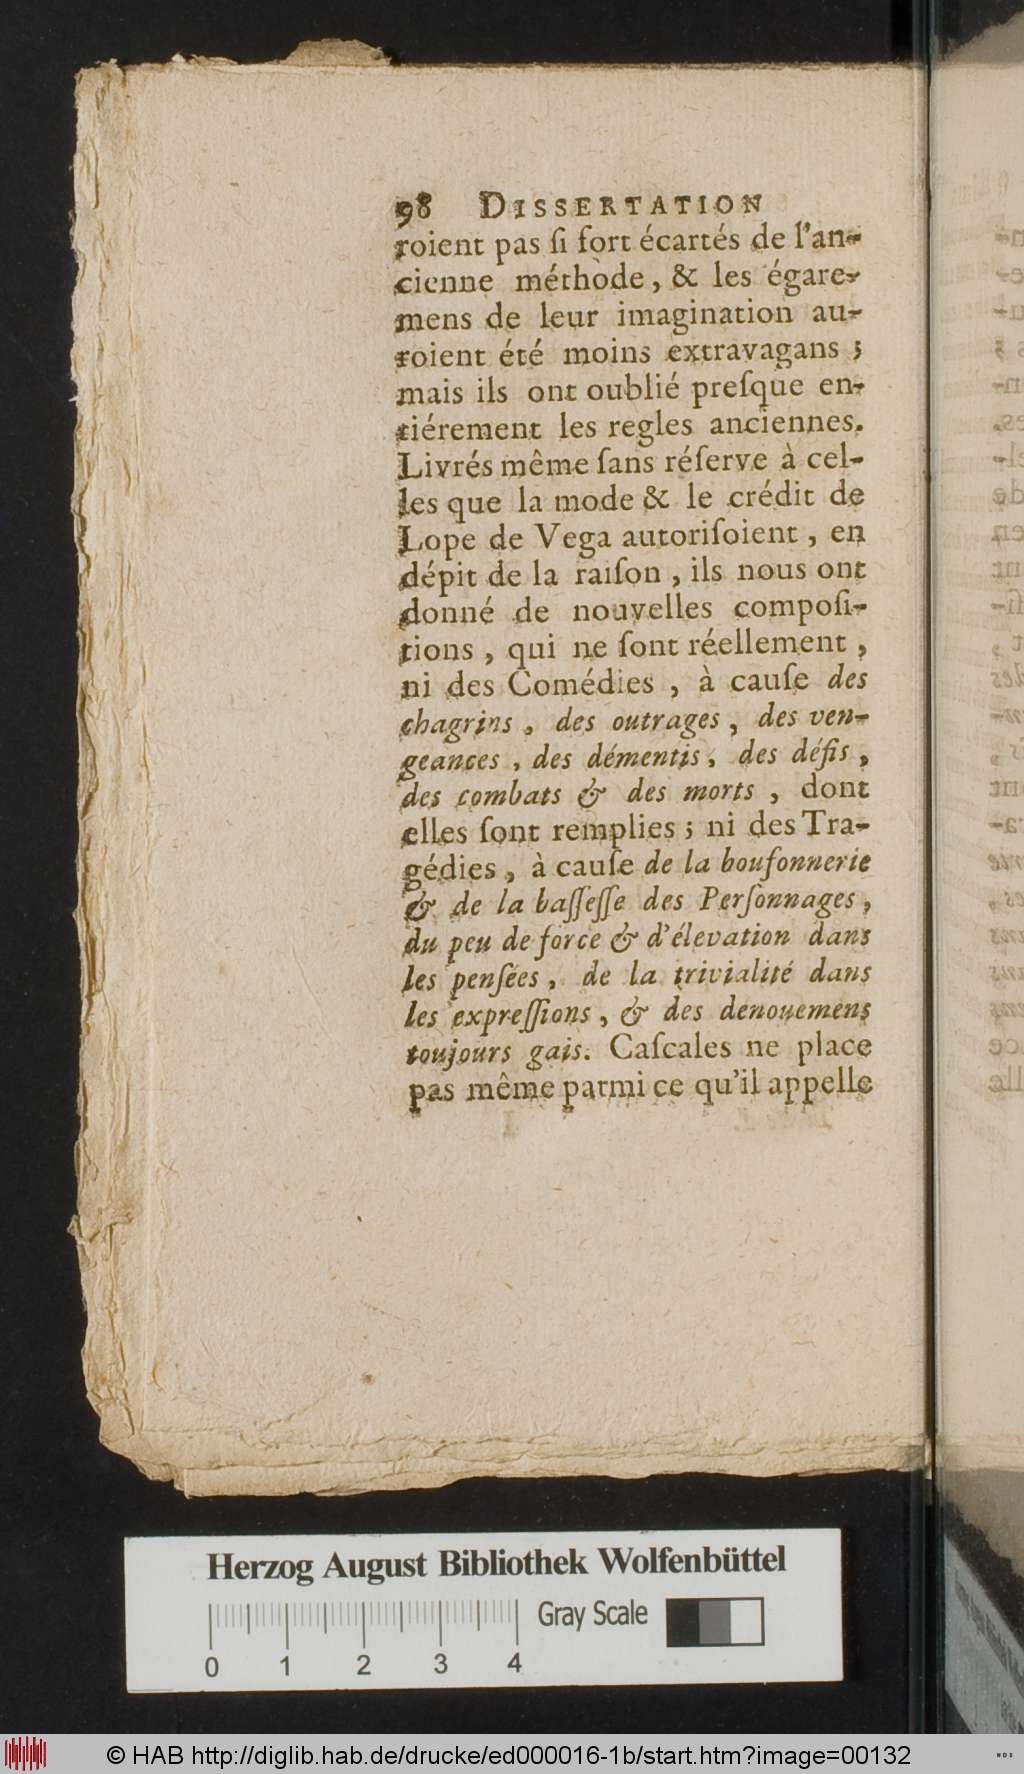 98 DISSERTATION
roient pas ſi fort écartés de l'an-
cienne méthode, & les égare-
mens de leur imagination au-
roient été moins extravagans ;
mais ils ont oublié preſque en-
tiérement les regles anciennes.
Livrés même ſans réſerve à cel-
les que la mode & le crédit de
Lope de Vega autoriſoient, en
dépit de la raiſon, ils nous ont
donné de nouvelles compoſi-
tions, qui ne ſont réellement,
ni des Comédies, à cauſe des
chagrins, des outrages, des ven-
geances, des démentis, des défis,
des combats & des morts, dont
elles ſont remplies ; ni des Tra-
gédies, à cauſe de la boufonnerie
& de la baſſeſſe des Perſonnages,
du peu de force & d'élevation dans
les penſées, de la trivialité dans
les expreſſions, & des denouemens
toujours gais. Caſcales ne place
pas même parmi ce qu'il appelle
Herzog August Bibliothek Wolfenbüttel
Gray Scale
0 1 2 3 4
© HAB http://diglib.hab.de/drucke/ed000016-1b/start.htm?image=00132